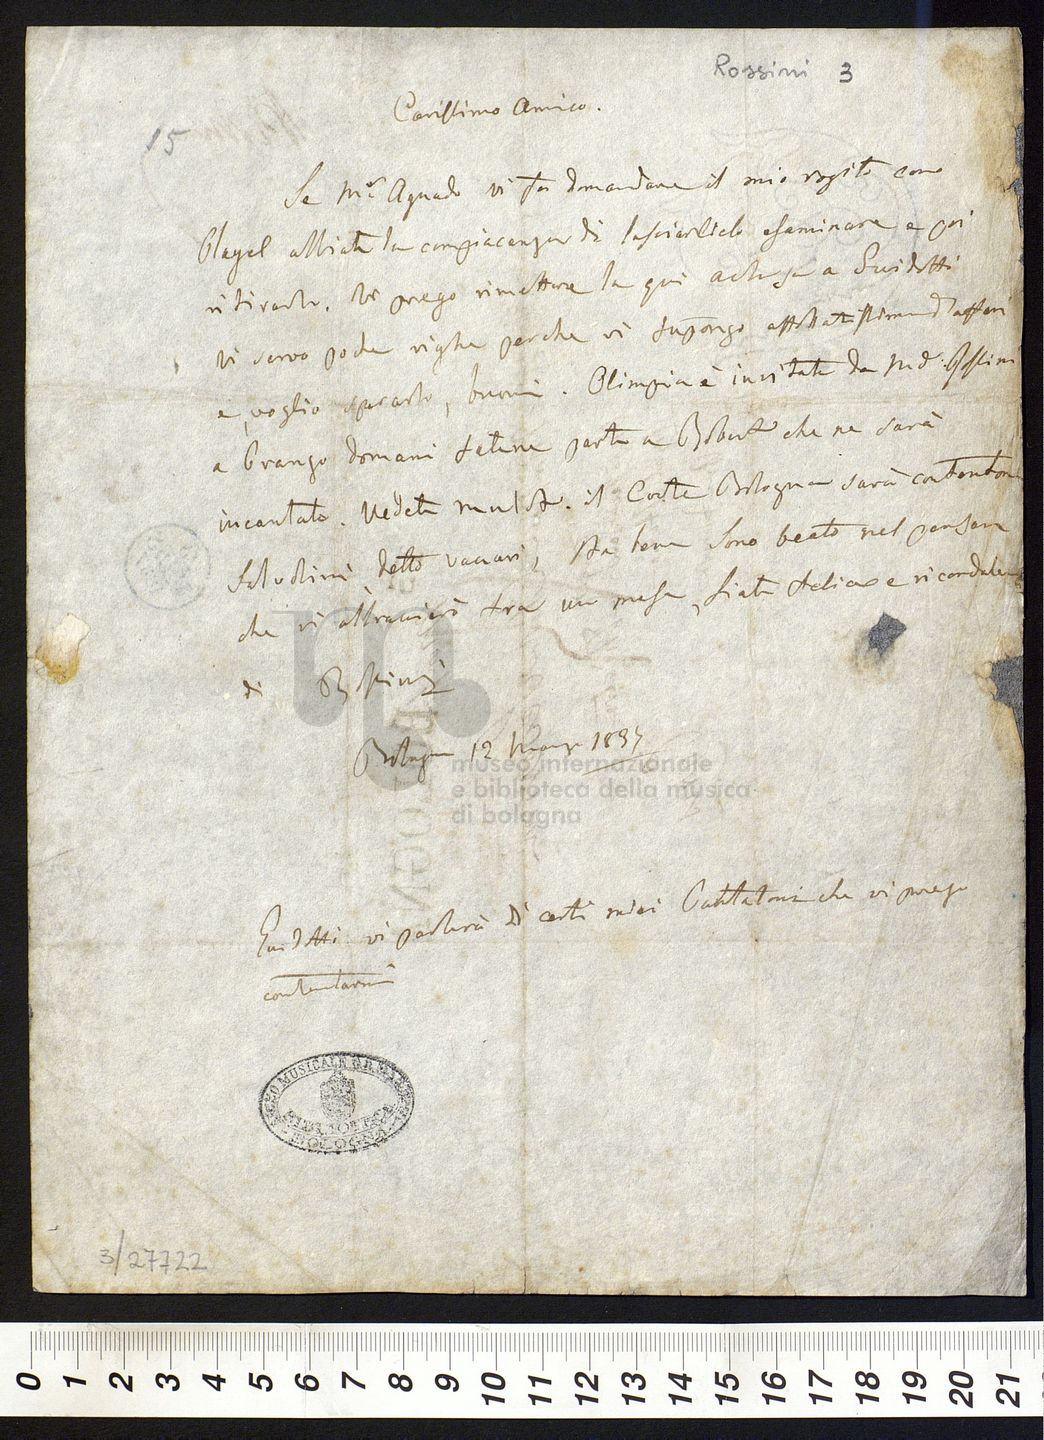 Rossini 3
15
Carissimo Amico.
Se Mr Aguado vi fa domandare il mio rogito con
Playel abbiate la compiacenza di lasciarlielo esaminare e poi
ritirarlo. Vi prego rimettere la qui a Guidotti
Vi scrivo poche righe perche vi suppongo d'affari
e voglio . Olimpia è invitata da Md. Rossini
a Pranzo domani fatene parte a Robert che ne sarà
incantato. Vedete . il Conte Bologna sarà
detto Vaccari, sta bene sono beato nel pensare
che vi abbraccierò fra un mese, siate felice e ricordatevi
di Rossini
Bologna 12 1835
museo internazionale
e biblioteca della musica
di bologna
Guidotti vi parlerà di certi miei che vi prego
contentarmi
LICEO MUSICALE
BIBLIOTECA
BOLOGNA
3/27722
0 1 2 3 4 5 6 7 8 9 10 11 12 13 14 15 16 17 18 19 20 21